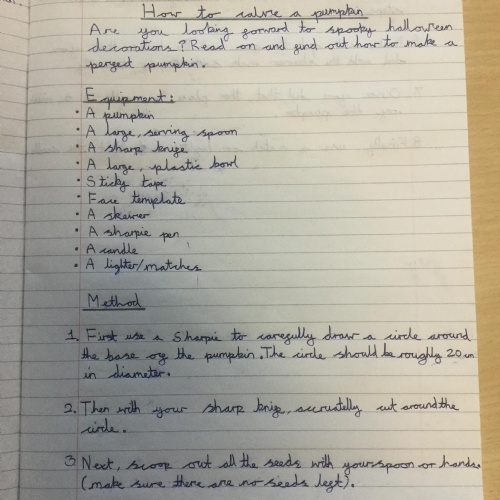 How to calve a pumpkin
Are you looking forward to spooky halloween
decorations? Read on and find out how to make a
perfect pumpkin.
Equipment:
• A pumpkin
• A large, serving spoon
• A sharp knife
• A large, plastic bowl
• Sticky tape
• Face template
• A skewer
• A sharpie pen
• A candle
• A lighter/matches
Method
1. First use a Sharpie to carefully draw a circle around
the base of the pumpkin. The circle should be roughly 20cm
in diameter.
2. Then with your sharp knife, accuratelly cut around the
circle.
3 Next, scoop out all the seeds with your spoon or hands.
(make sure there are no seeds left).